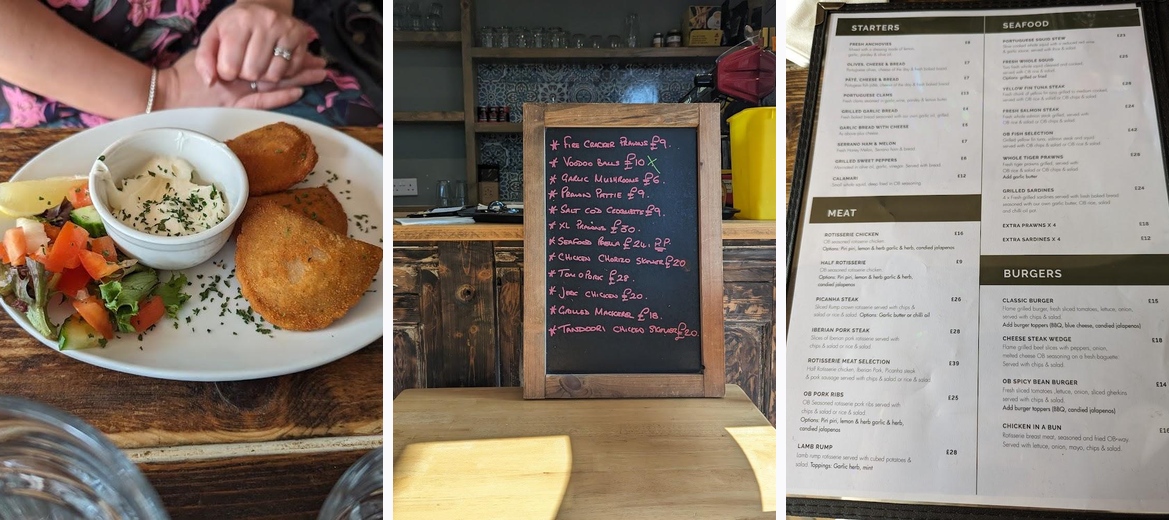 * FIRE CRACKER PRAWNS £9.
* VOODOO BALLS £10 X
* GARLIC MUSHROOMS £6.
* PRAWN PATTIE £9.
* SALT COD CROQUETTE £9.
* XL PRAWNS £30.
* SEAFOOD PAELLA £24. P.P.
* CHICKEN CHORIZO SKEWER £20
* TOMOPORK £28.
* JERK CHICKEN £20.
* GRILLED MACKEREL £18.
* TANDOORI CHICKEN SKEWER £20.
STARTERS
FRESH ANCHOVIES £8
OLIVES, CHEESE & BREAD £7
PÂTÉ, CHEESE & BREAD £7
PORTUGUESE CLAMS
GRILLED GARLIC BREAD
GARLIC BREAD WITH CHEESE
SERRANO HAM & MELON £7
GRILLED SWEET PEPPERS £8
CALAMARI £12
MEAT
ROTISSERIE CHICKEN £16
OB seasoned rotisserie chicken.
Options: Piri piri, lemon & herb garlic & herb, candied jalapenos
HALF ROTISSERIE £9
OB seasoned rotisserie chicken.
Options: Piri piri, lemon & herb garlic & herb,
candied jalapenos
PICANHA STEAK £26
Sliced rump cover rotisserie served with chips &
salad or rice & salad. Options: Garlic butter or chilli oil
IBERIAN PORK STEAK £28
Slices of Iberian pork rotisserie served with
chips & salad or rice & salad.
ROTISSERIE MEAT SELECTION £39
Half Rotisserie chicken, Iberian Pork, Picanha steak
& pork sausage served with chips & salad or rice & salad.
OB PORK RIBS £25
OB Seasoned rotisserie pork ribs served with
chips & salad or rice & salad.
Options: Piri piri, lemon & herb garlic & herb,
candied jalapenos
LAMB RUMP £28
Lamb rump rotisserie served with cubed potatoes &
salad. Toppings: Garlic herb, mint
SEAFOOD
PORTUGUESE SQUID STEW £25
FRESH WHOLE SQUID £25
Options: grilled or fried
YELLOW FIN TUNA STEAK £28
FRESH SALMON STEAK £24
OB FISH SELECTION £42
WHOLE TIGER PRAWNS £28
Add garlic butter
GRILLED SARDINES £24
4 x Fresh grilled sardines served with fresh baked bread
EXTRA PRAWNS X 4 £18
EXTRA SARDINES X 4 £12
BURGERS
CLASSIC BURGER £15
Home grilled burger, fresh sliced tomatoes, lettuce, onion,
served with chips & salad.
Add burger toppers (BBQ, blue cheese, candied jalapenos)
CHEESE STEAK WEDGE £18
Home grilled beef slices with peppers, onion,
melted cheese OB seasoning on a fresh baguette.
Served with chips & salad.
OB SPICY BEAN BURGER £14
Fresh sliced tomatoes, lettuce, onion, sliced gherkins
served with chips & salad.
Add burger toppers (BBQ, candied jalapenos)
CHICKEN IN A BUN
Rotisserie breast meat, seasoned and fried OB-way.
Served with lettuce, onion, mayo, chips & salad.